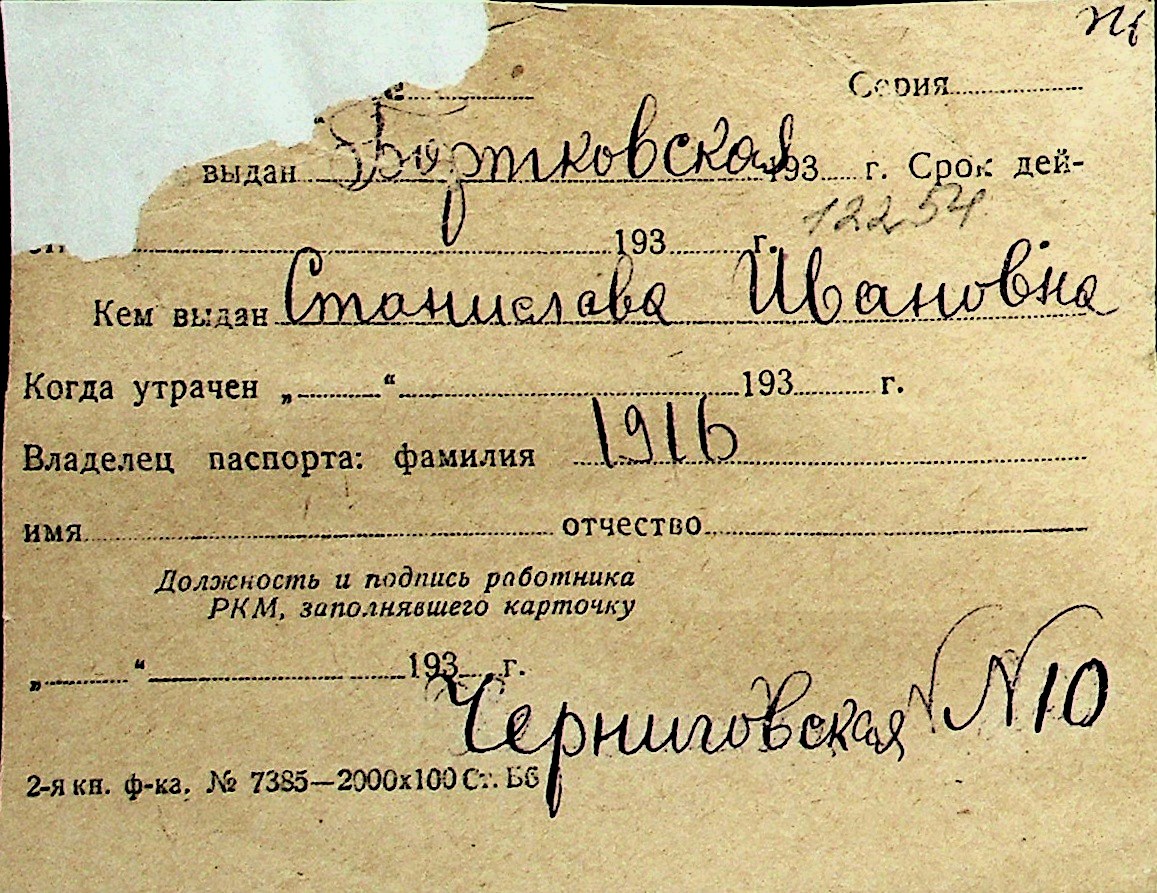 Серия
выдан Бортковская 193 г. Срок дей-
193 г. 12254
Кем выдан Станислава Ивановна
Когда утрачен „ “ 193 г.
Владелец паспорта: фамилия 1916
имя отчество
Должность и подпись работника
РКМ, заполнявшего карточку
„ “ 193 г.
Черниговская N 10
2-я кн. ф-ка. № 7385—2000х100 Ст. Бб